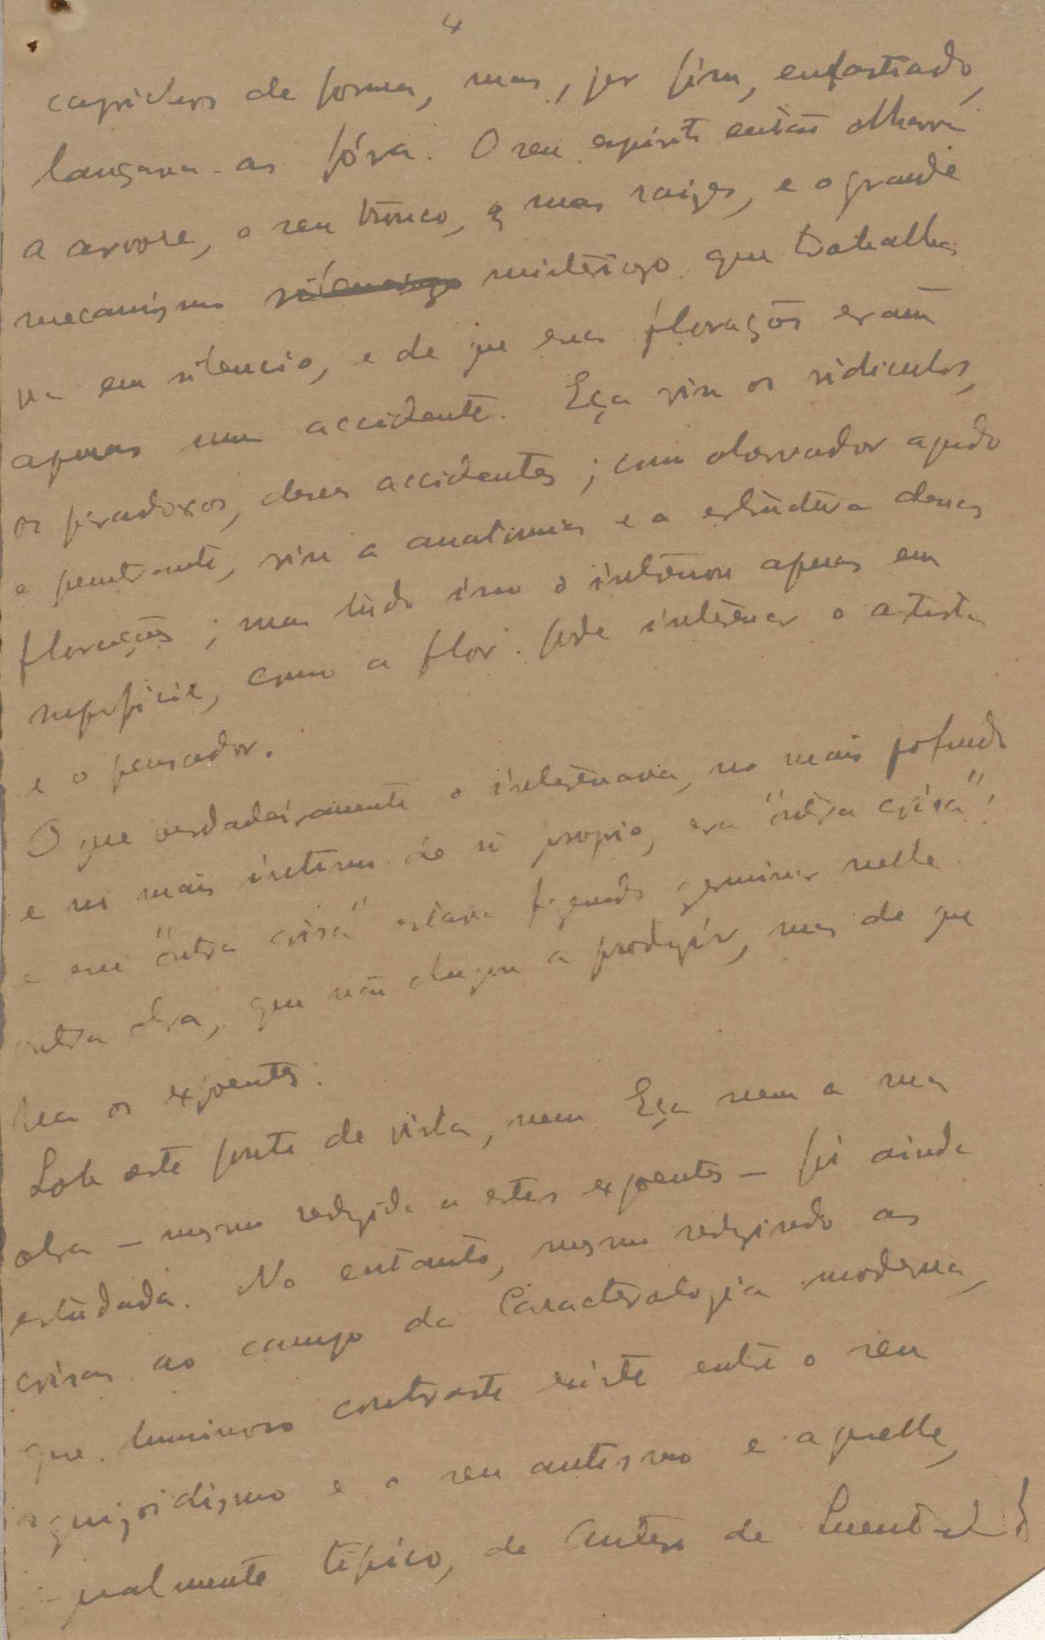 4
caprichos de forma, mas, por fim, enfastiado,
lançava-as fóra. O seu espirito então olhava
a arvore, o seu tronco, as suas raizes, e o grande
mecanismo misterioso que trabalha
va em silencio, e de que essas florações eram
apenas um accidente. Eça viu os ridiculos,
os paradoxos, desses accidentes; com observador agudo
e penetrante, viu a anatomia e a estrutura dessas
florações; mas tudo isso o interessou apenas em
superficie, como a flor pode interessar o artista
e o pensador.
O que verdadeiramente o interessava, no mais profundo
e no mais intimo de si proprio, era "outra coisa":
e essa "outra coisa" estava fazendo germinar nelle
outra obra, que não chegou a produzir, mas de que
os expoentes.
Sob este ponto de vista, nem Eça nem a sua
obra – mesmo reduzida a estes expoentes – foi ainda
estudada. No entanto, mesmo reduzindo as
coisas ao campo da Caracterologia moderna,
que luminoso contraste existe entre o seu
esquizoidismo e o seu autismo e aquelle,
igualmente tipico, de Antero de Quental!